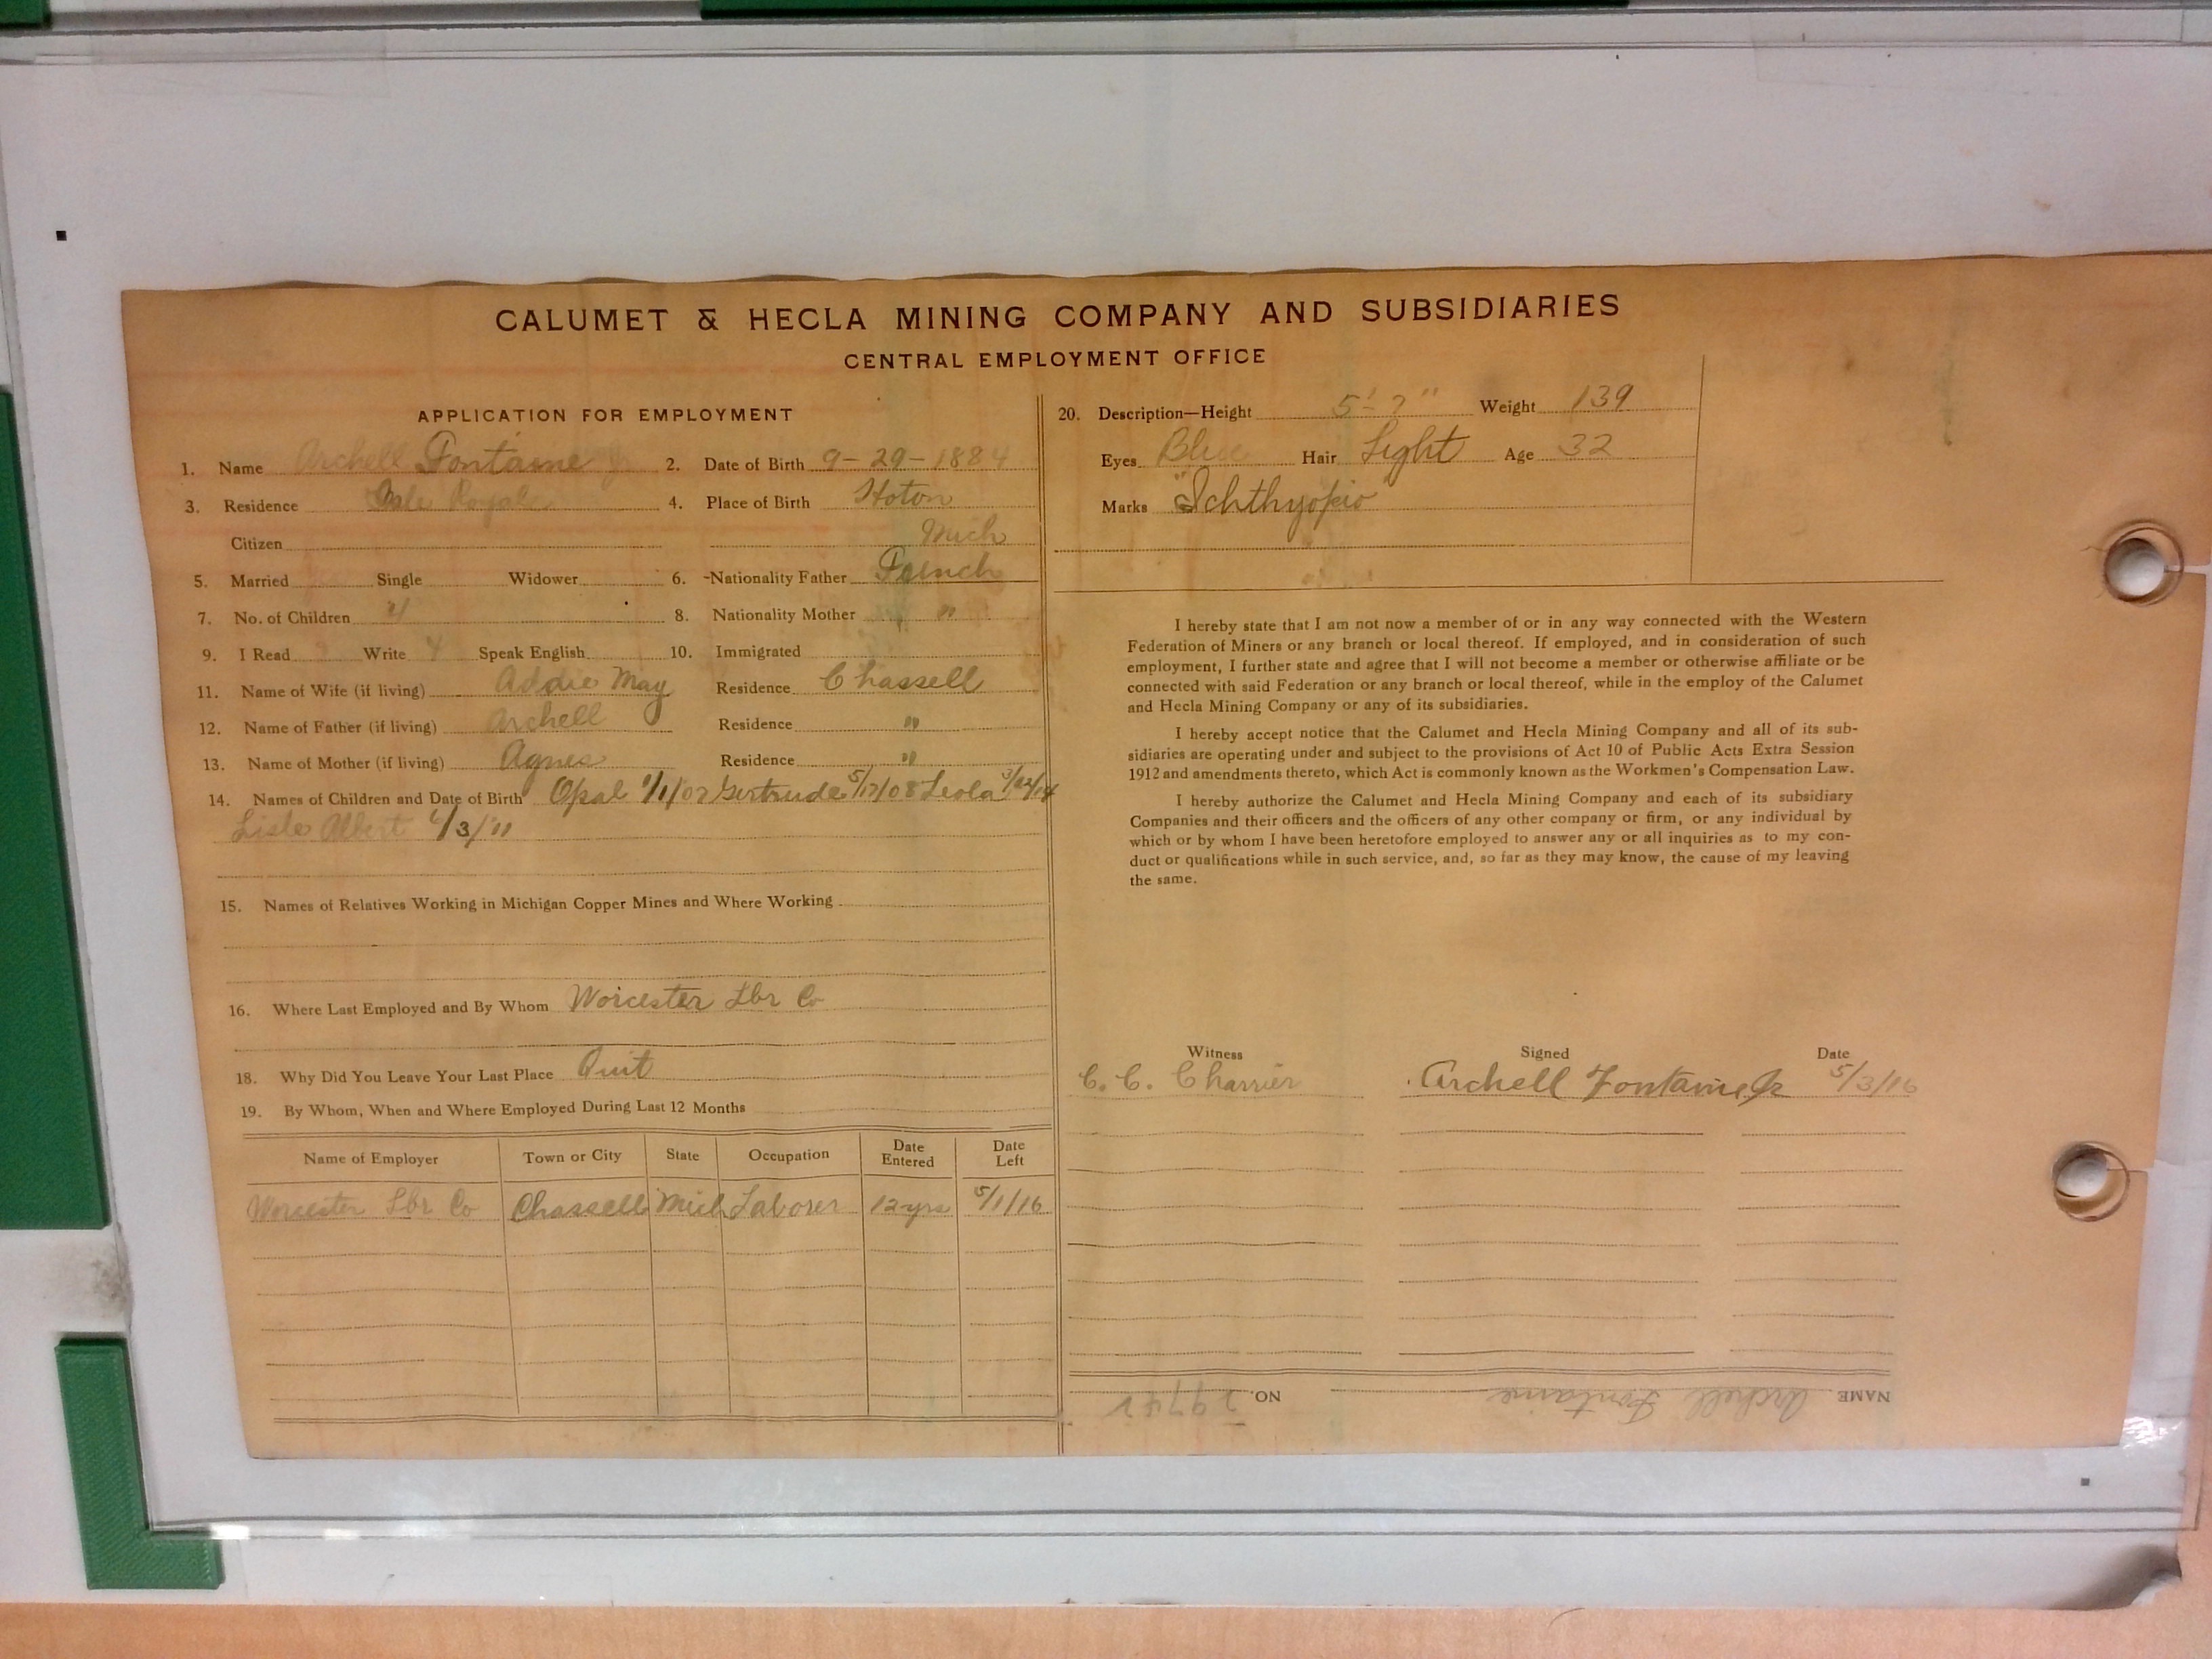 CALUMET & HECLA MINING COMPANY AND SUBSIDIARIES
CENTRAL EMPLOYMENT OFFICE
APPLICATION FOR EMPLOYMENT
1. Name Archell Fontaine Jr 2. Date of Birth 9-29-1884
3. Residence Isle Royale 4. Place of Birth Hoton
Citizen Mich
5. Married Single Widower 6. Nationality Father French
7. No. of Children 4 8. Nationality Mother "
9. I Read Write Speak English 10. Immigrated
11. Name of Wife (if living) Addie May Residence Chassell
12. Name of Father (if living) Archell Residence "
13. Name of Mother (if living) Agnes Residence "
14. Names of Children and Date of Birth Opal Gertrude Leola
Lisle Albert 6/3/11
15. Names of Relatives Working in Michigan Copper Mines and Where Working
16. Where Last Employed and By Whom Worcester Lbr Co
18. Why Did You Leave Your Last Place Quit
19. By Whom, When and Where Employed During Last 12 Months
Name of Employer Town or City State Occupation Date Entered Date Left
Worcester Lbr Co Chassell Mich Laborer 12 yrs 5/1/16
20. Description—Height 5'-7" Weight 139
Eyes Blue Hair Light Age 32
Marks "Ichthyopio"
I hereby state that I am not now a member of or in any way connected with the Western
Federation of Miners or any branch or local thereof. If employed, and in consideration of such
employment, I further state and agree that I will not become a member or otherwise affiliate or be
connected with said Federation or any branch or local thereof, while in the employ of the Calumet
and Hecla Mining Company or any of its subsidiaries.
I hereby accept notice that the Calumet and Hecla Mining Company and all of its sub-
sidiaries are operating under and subject to the provisions of Act 10 of Public Acts Extra Session
1912 and amendments thereto, which Act is commonly known as the Workmen's Compensation Law.
I hereby authorize the Calumet and Hecla Mining Company and each of its subsidiary
Companies and their officers and the officers of any other company or firm, or any individual by
which or by whom I have been heretofore employed to answer any or all inquiries as to my con-
duct or qualifications while in such service, and, so far as they may know, the cause of my leaving
the same.
Witness Signed Date
C. C. Charrier Archell Fontaine Jr 5/3/16
NAME Archell Fontaine NO.